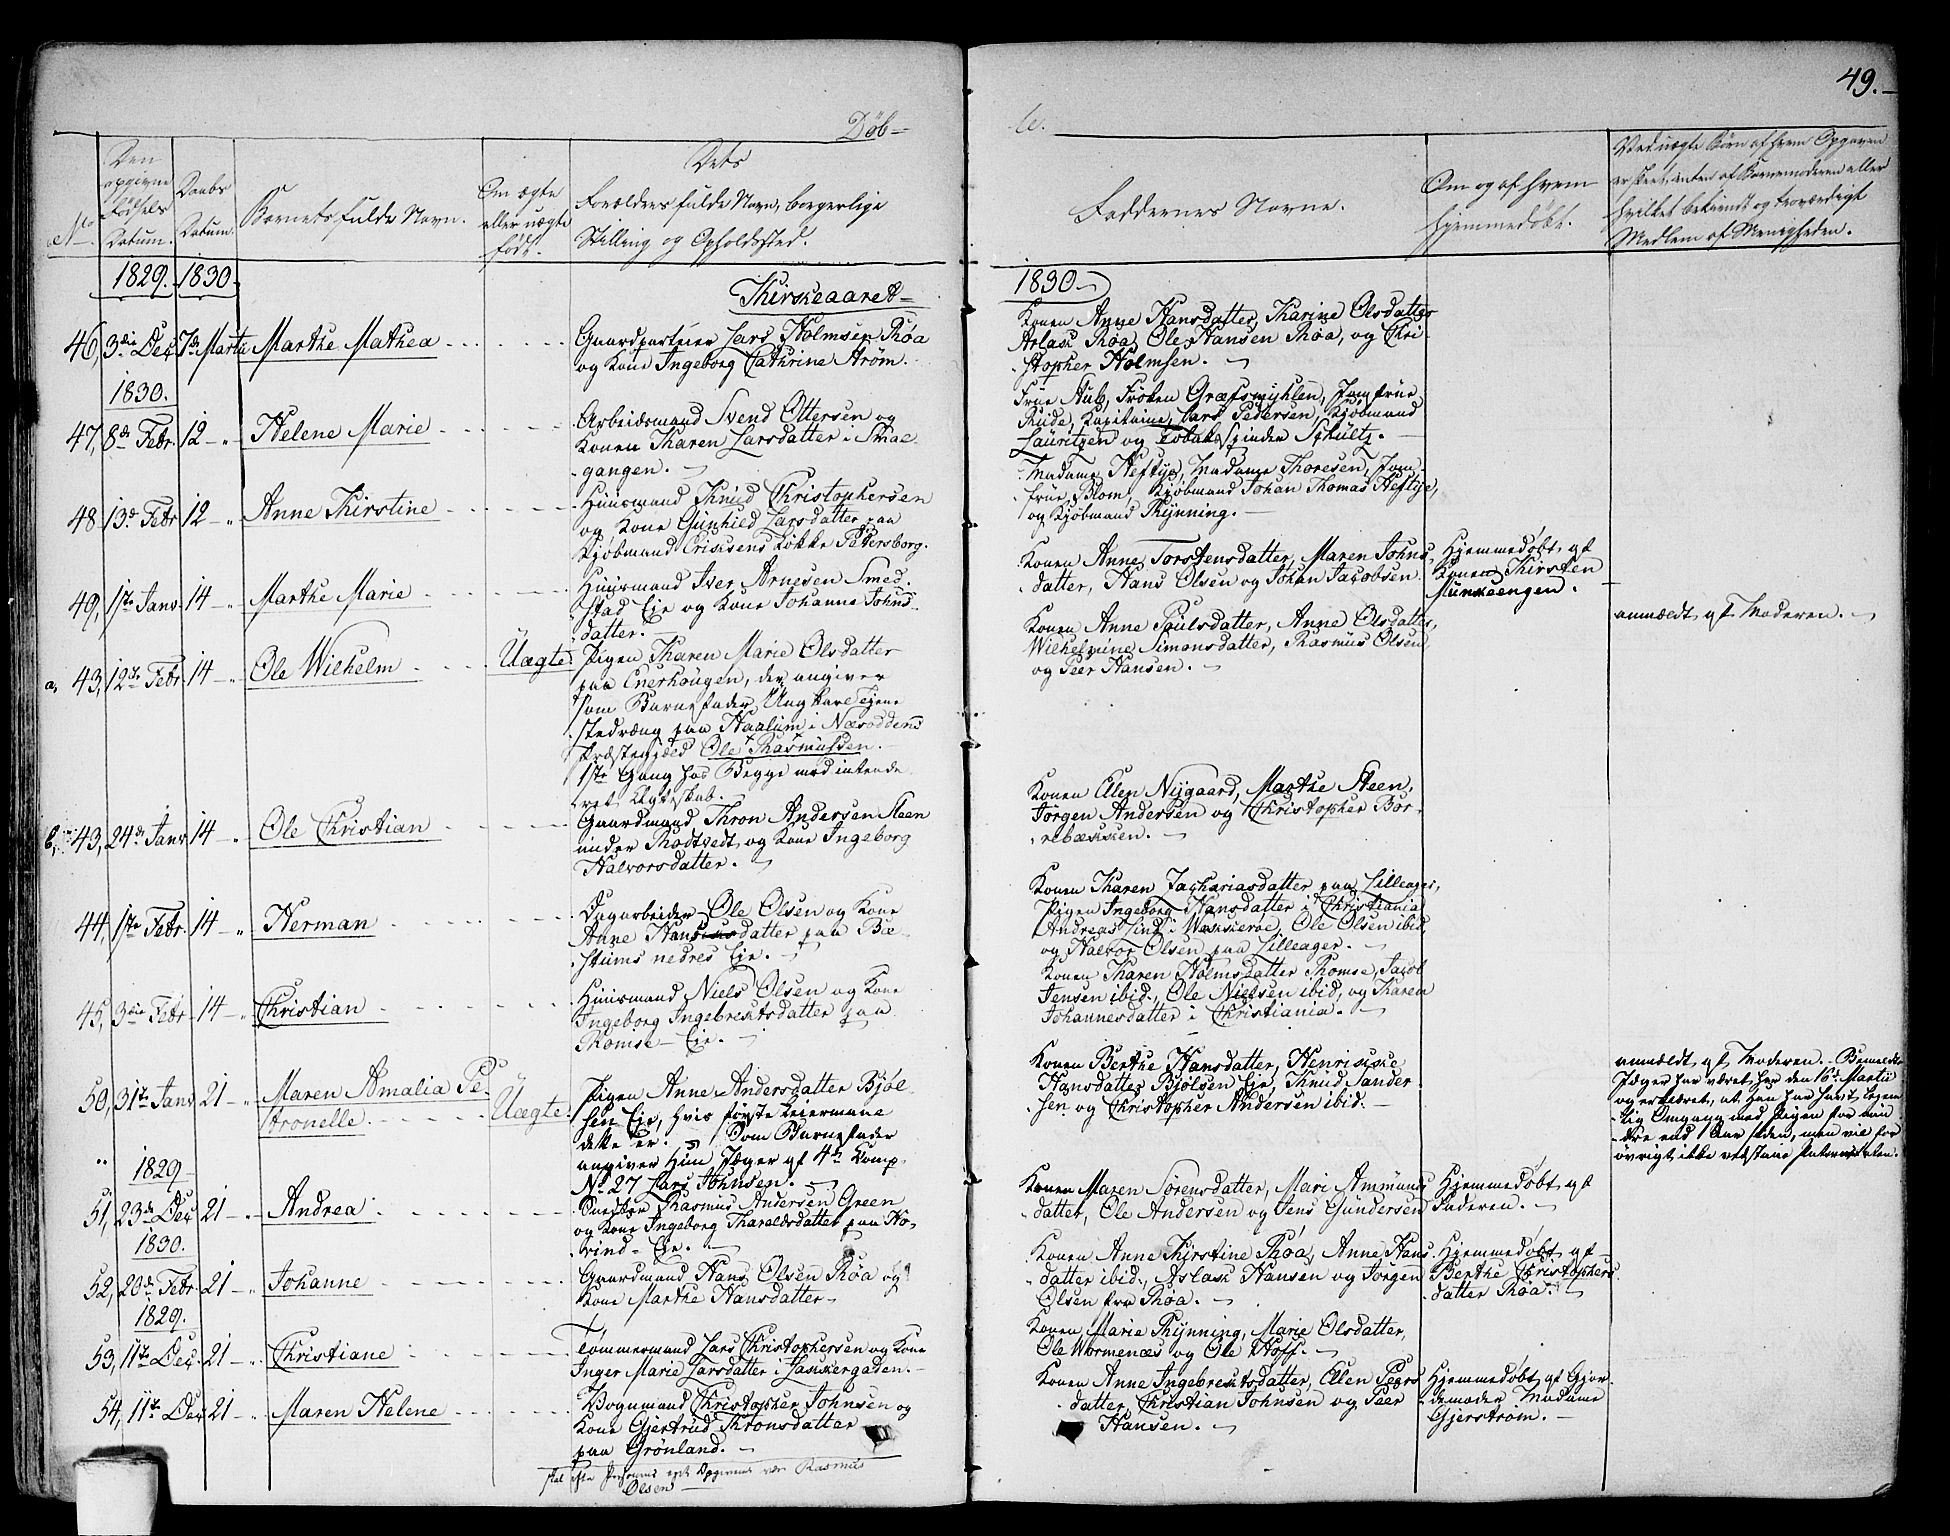 49.
Døb-
te.
No.
Den
opgivne
Fødsels
Datum.
Daabs
Datum.
Barnets fulde Navn.
Om ægte
eller uægte
født.
Dets
Forældres fulde Navn, borgerlige
Stilling og Opholdssted.
Faddernes Navne.
Om og af hvem
hjemmedøbt.
Ved uægte Børn af hvem Opgaven
er skeet, enten af Barnemoderen eller
hvilket bekiendt og troværdigt
Medlem af Menigheden.
1829. 1830.
Kirkeaaret
1830
46, 3die Dec. 7de Martii Marthe Mathea
Gaardparteier Lars Holmsen Røa
og Kone Ingeborg Cathrine Strøm.
Konen Anne Hansdatter, Karine Olsdatter
Aslak Røa, Ole Hansen Røa, og Chri-
stopher Holmsen.
1830.
47, 8de Febr. 12 - " Helene Marie
Arbeidsmand Svend Ottersen og
Konen Karen Larsdatter i Smal-
gangen.
Frue Aub, Frøken Græfsmyhlen, Jomfrue
Rude, Kapitaine Lars Pedersen, Kjøbmand
Lauritzen og Tobakspinder Schultz.
48 13de Febr 12 - " Anne Kirstine
Huusmand Knud Christophersen
og Kone Gunhild Larsdatter paa
Kjøbmand Eriksens Løkke Petersborg.
Madame Heftye, Madame Thoresen, Jom-
frue Blom, Kjøbmand Johan Thomas Heftye,
og Kjøbmand Rynning.
49, 1ste Janv. 14 - " Marthe Marie
Huusmand Iver Arnesen Smed-
stad Eie og Kone Johanne Johns-
datter.
Konen Anne Torstensdatter, Maren Johns-
datter, Hans Olsen og Johan Jacobsen.
Hjemmedøbt af
Konen Kirsten
Munkeengen.
a, 43, 12te Febr 14 - " Ole Wilhelm
Uægte.
Pigen Karen Marie Olsdatter
paa Enerhougen, der angiver
som Barnefader Ungkarl Tjene-
stedreng paa Haalum i Næsoddens
Præstegjeld Ole Rasmussen.
1ste Gang hos Begge med intende-
ret Ægteskab.
Konen Anne Paulsdatter, Anne Olsdatter,
Wilhelmine Simonsdatter, Rasmus Olsen
og Peer Hansen.
anmældt af Moderen.
b, 43, 24de Janv 14 - " Ole Christian
Gaardmand Thron Andersen Steen
under Rodtvedt og Kone Ingeborg
Halvorsdatter.
Konen Ellen Nygaard, Marthe Steen,
Jørgen Andersen og Christopher Bor-
rebækken.
44, 1ste Febr. 14 - " Herman
Dagarbeider Ole Olsen og Kone
Anne Hansdatter paa Bæ-
stums nedres Eie.
Konen Karen Zachariasdatter paa Lilleager,
Pigen Ingeborg Hansdatter i Christiania
Andreas Lind i Wækkerøe, Ole Olsen ibid,
og Halvor Olsen paa Lilleager.
45, 3die Febr 14 - " Christian
Huusmand Niels Olsen og Kone
Ingeborg Ingebretsdatter paa
Romse-Eie.
Konen Karen Holmsdatter Romse, Jacob
Jensen ibid., Ole Nielsen ibid, og Karen
Johannesdatter i Christiania.
50, 31te Janv 21 - " Maren Amalia Pe-
tronelle.
Uægte.
Pigen Anne Andersdatter Bjøl-
sen Eie, hvis første Leiermaal
dette er. Som Barnefader
angiver hun Jæger af 4de Comp.
No 27 Lars Johnsen.
Konen Berthe Hansdatter, Henrikke
Hansdatter Bjølsen Eie, Knud Sander-
sen og Christopher Andersen ibid.
anmældt af Moderen. Bemeldte
Jæger har været her den 16de Martii
og erklæret, at han har havt legem-
lig Omgang med Pigen for min-
dre end 1 Aar siden, men vil for
øvrigt ikke vedstaae Paterniteten.
1829
51, 23de Dec. 21 - " Andrea
Snedker Rasmus Andersen Green
og Kone Ingeborg Haraldsdatter paa Ho-
vind-Eie.
Konen Maren Sørensdatter, Mari Ammunds
datter, Ole Andersen og Jens Gundersen
Hjemmedøbt af
Faderen.
1830.
52, 20de Febr. 21 - " Johanne
Gaardmand Hans Olsen Røa og
Kone Marthe Hansdatter
Konen Anne Kirstine Røa, Anne Hans-
datter ibid., Aslak Hansen og Jørgen
Olsen fra Røa.
Hjemmedøbt af
Berthe Christophers
datter Røa.
1829.
53, 11te Dec. 21 - " Christiane
Tømmermand Lars Christophersen og Kone
Inger Marie Larsdatter i Lakkergaden.
Konen Marie Rynning, Marie Olsdatter,
Ole Wormenæs og Ole Hoff.
54, 11te Dec 21 - " Maren Helene
Vognmand Christopher Johnsen og
Kone Gjertrud Thronsdatter
paa Grønland.
Konen Anne Ingebretsdatter, Ellen Peers
datter, Christian Johnsen og Peer
Hansen.
Hjemmedøbt af Gjor-
demoder Madame
Gjerstrøm.
skal efte Opgivende være Rasmus
Olsen